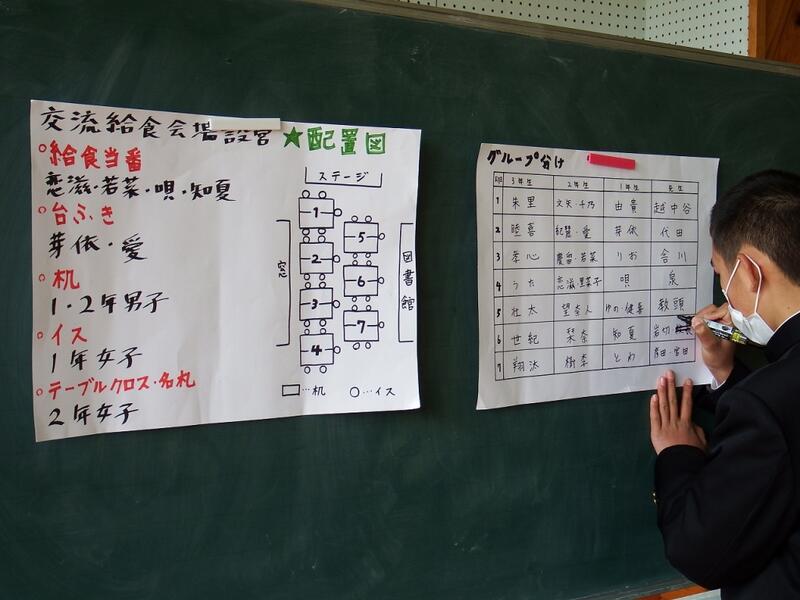 交流給食会場設営
○給食当番
恋滋・若菜・唄・知夏
○台ふき
芽依・愛
○机
1・2年男子
○イス
1年女子
○テーブルクロス・名札
2年女子
★配置図
ステージ
窓
図書館
1
2
3
4
5
6
7
□…机 ○…イス
グループ分け
班 3年生 2年生 1年生 先生
1 朱里 文矢・千乃 由貴 越中谷
2 睦喜 紀慧・愛 芽依 代田
3 孝心 慶留・若菜 りお 合川
4 うた 恋滋・里菜子 唄 泉
5 壮太 望奈人 ゆの・健喜 教頭
6 世紀 栞奈 知夏 岩切
7 翔汰 樹李 とわ